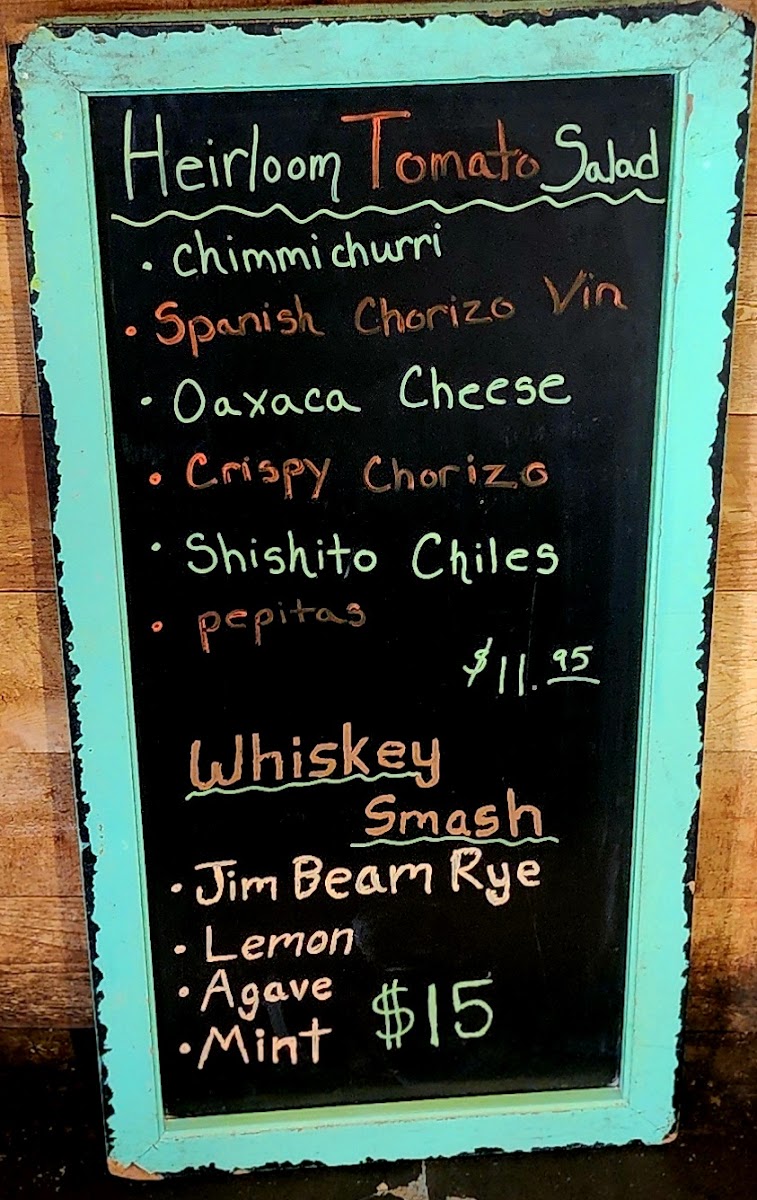 Heirloom Tomato Salad
• Chimmichurri
• Spanish Chorizo Vin
• Oaxaca Cheese
• Crispy Chorizo
• Shishito Chiles
• pepitas
$11.95
Whiskey
Smash
• Jim Beam Rye
• Lemon
• Agave
$15
• Mint